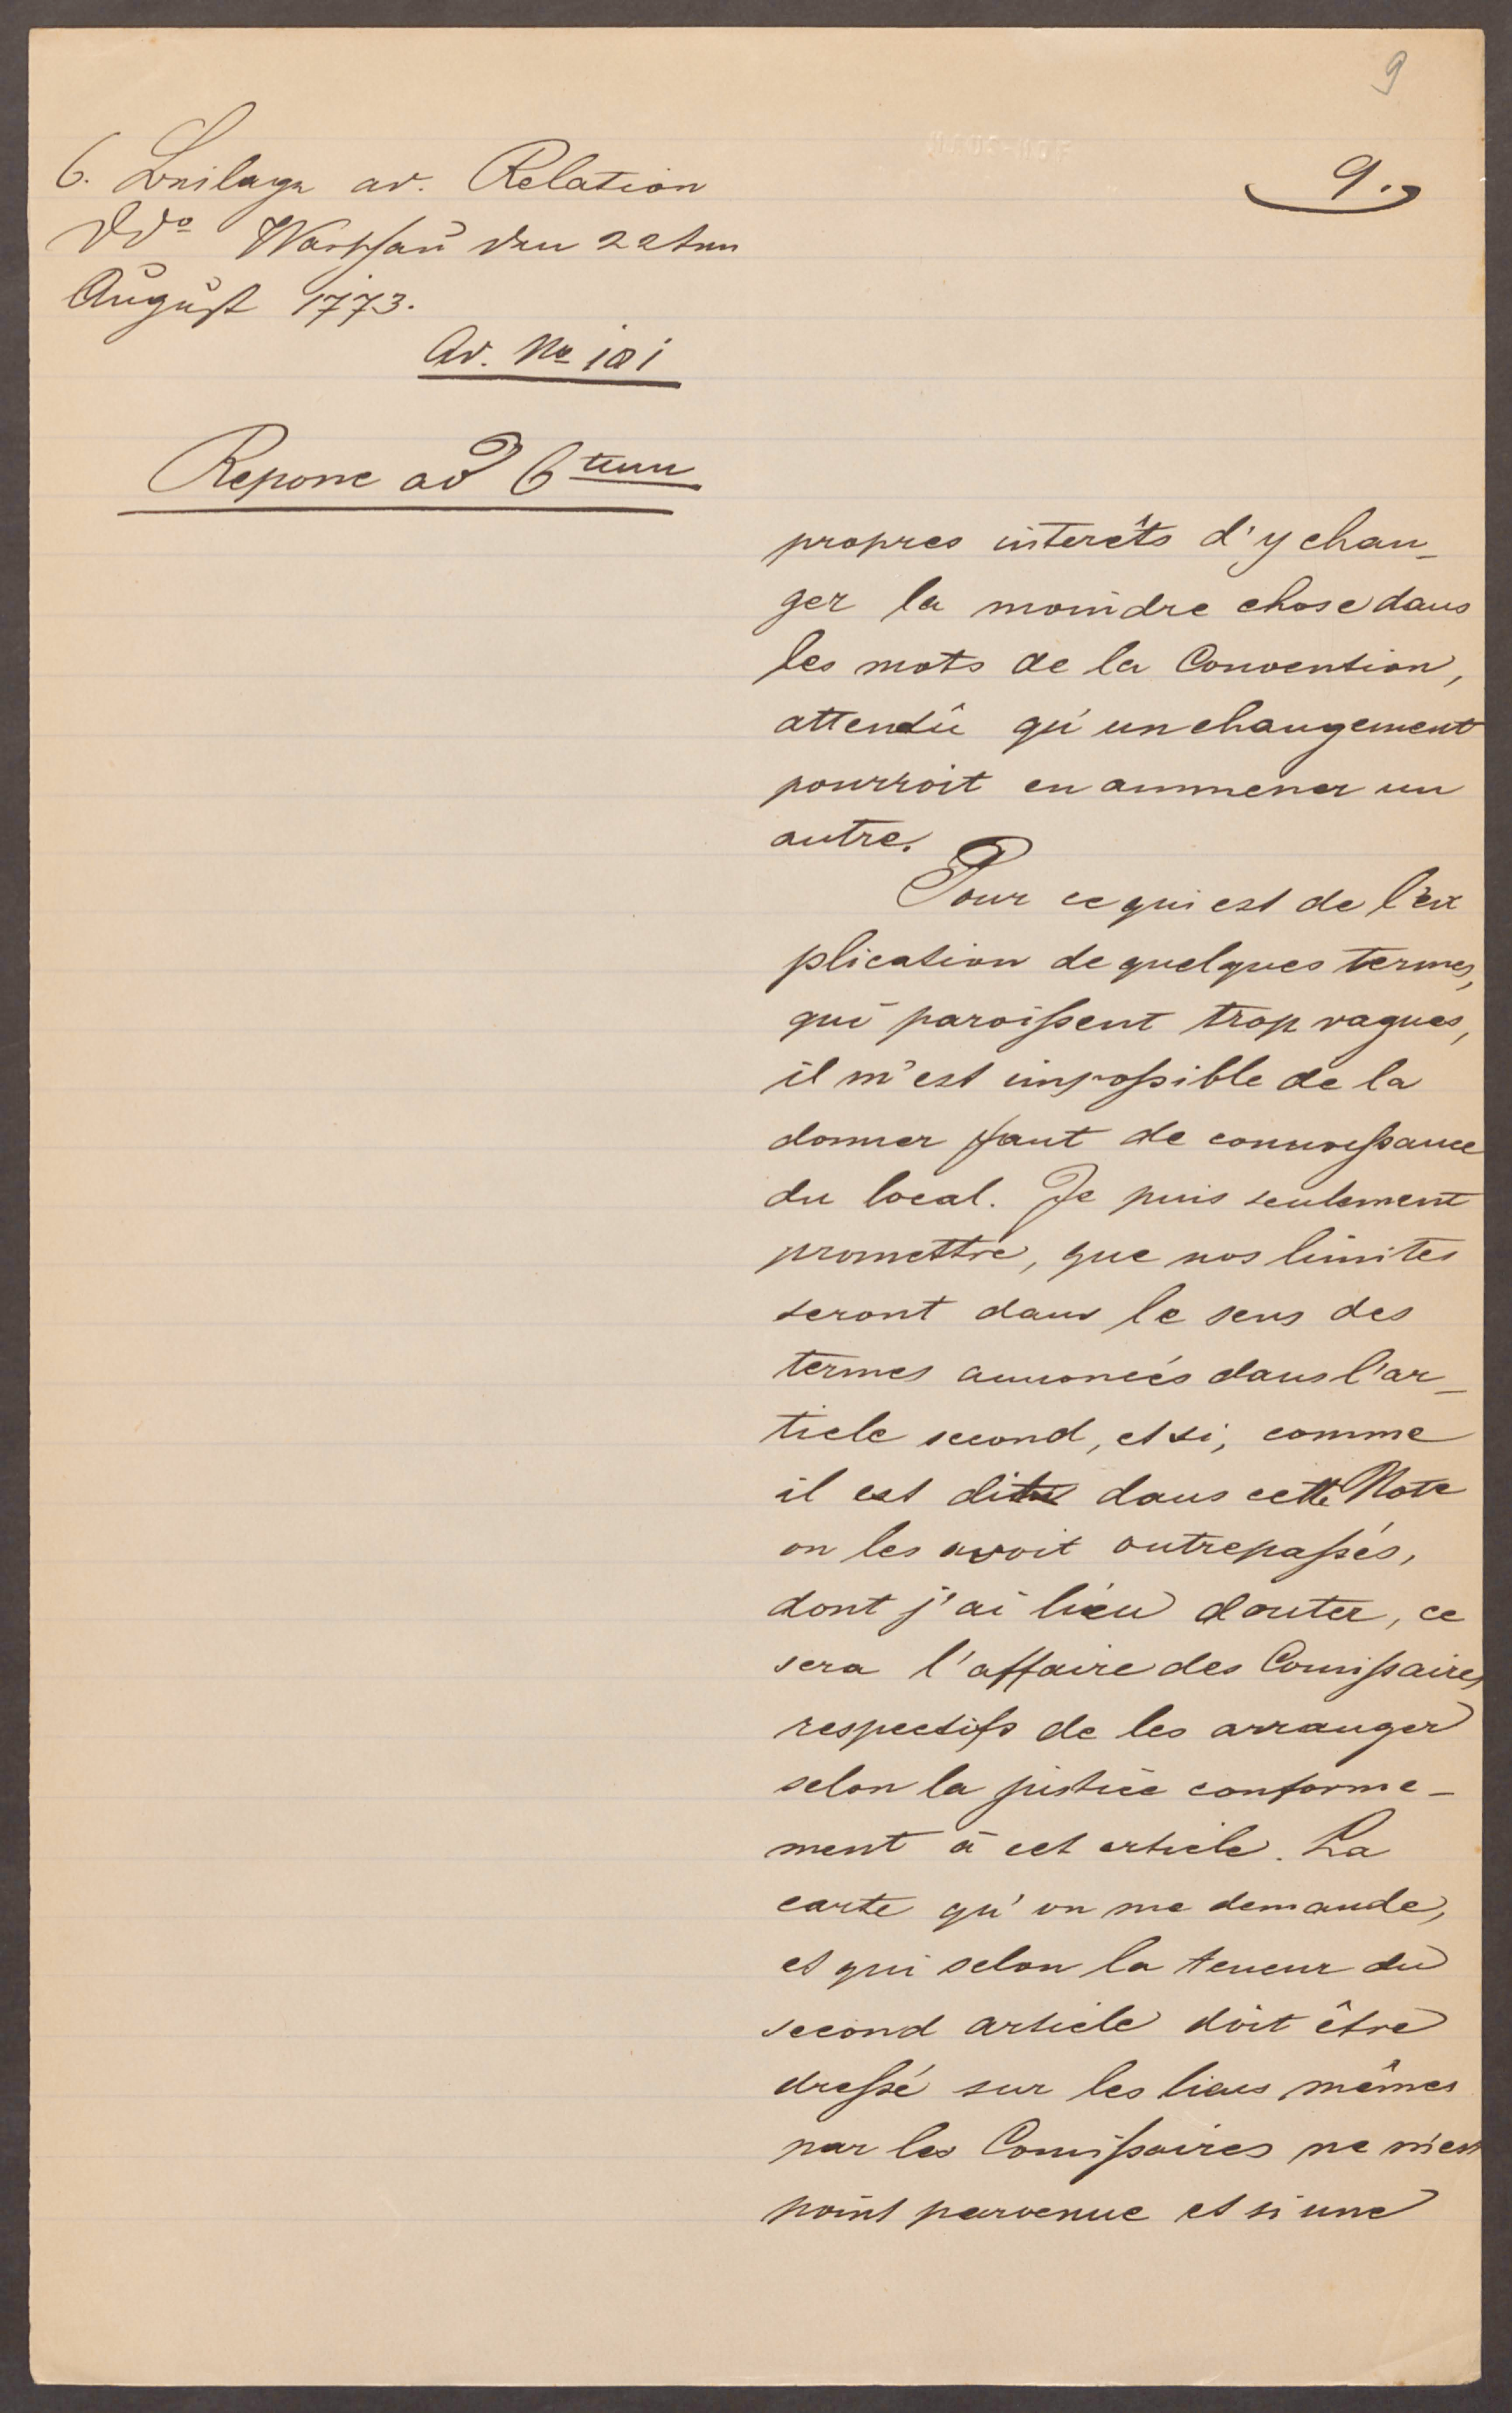 9
9.
6. Beilage ad. Relation
ddo Warschau den 22ten
August 1773.
Ad. No 101
Repone ad 6tum
propres interêts d'y chan-
ger la moindre chose dans
les mots de la Convention,
attendû qu'un changement
pourroit en ammener un
autre.
Pour ce qui est de l'ex
plication de quelques termes,
qui paroißent trop vagues,
il m'est impoßible de la
donner faut de connoißance
du local. Je puis seulement
promettre, que nos limites
seront dans le sens des
termes annoncés dans l'ar-
ticle second, et si, comme
il est dit dans cette Note
on les avoit outrepaßés,
dont j'ai lieu douter, ce
sera l'affaire des Comißaires
respectifs de les arranger
selon la justice conforme-
ment à cet article. La
carte qu'on me demande,
et qui selon la teneur du
second article doit être
dreßé sur les lieus mêmes
par les Comißaires ne m'est
point parvenue et si une